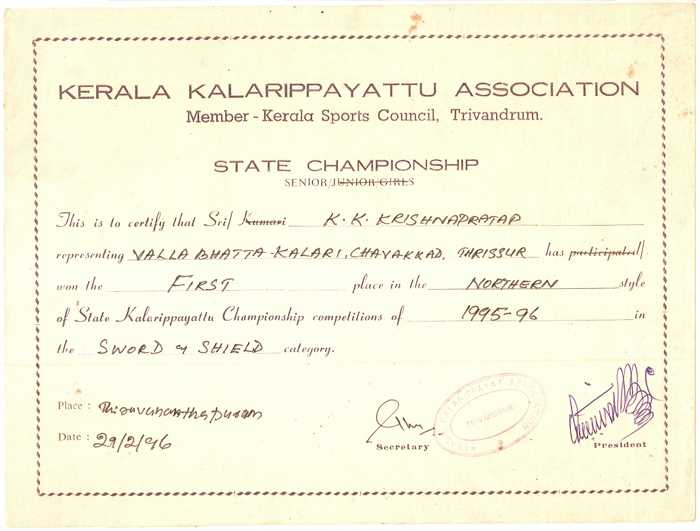 KERALA KALARIPPAYATTU ASSOCIATION
Member - Kerala Sports Council, Trivandrum.
STATE CHAMPIONSHIP
SENIOR/JUNIOR GIRLS
This is to certify that Sri/ Kumari K. K. KRISHNAPRATAP
representing VALLABHATTA-KALARI, CHAVAKKAD, THRISSUR has participated/
won the FIRST place in the NORTHERN style
of State Kalarippayattu Championship competitions of 1995-96 in
the SWORD & SHIELD category.
Place : Thiruvananthapuram
Date : 29/2/96
Secretary
President